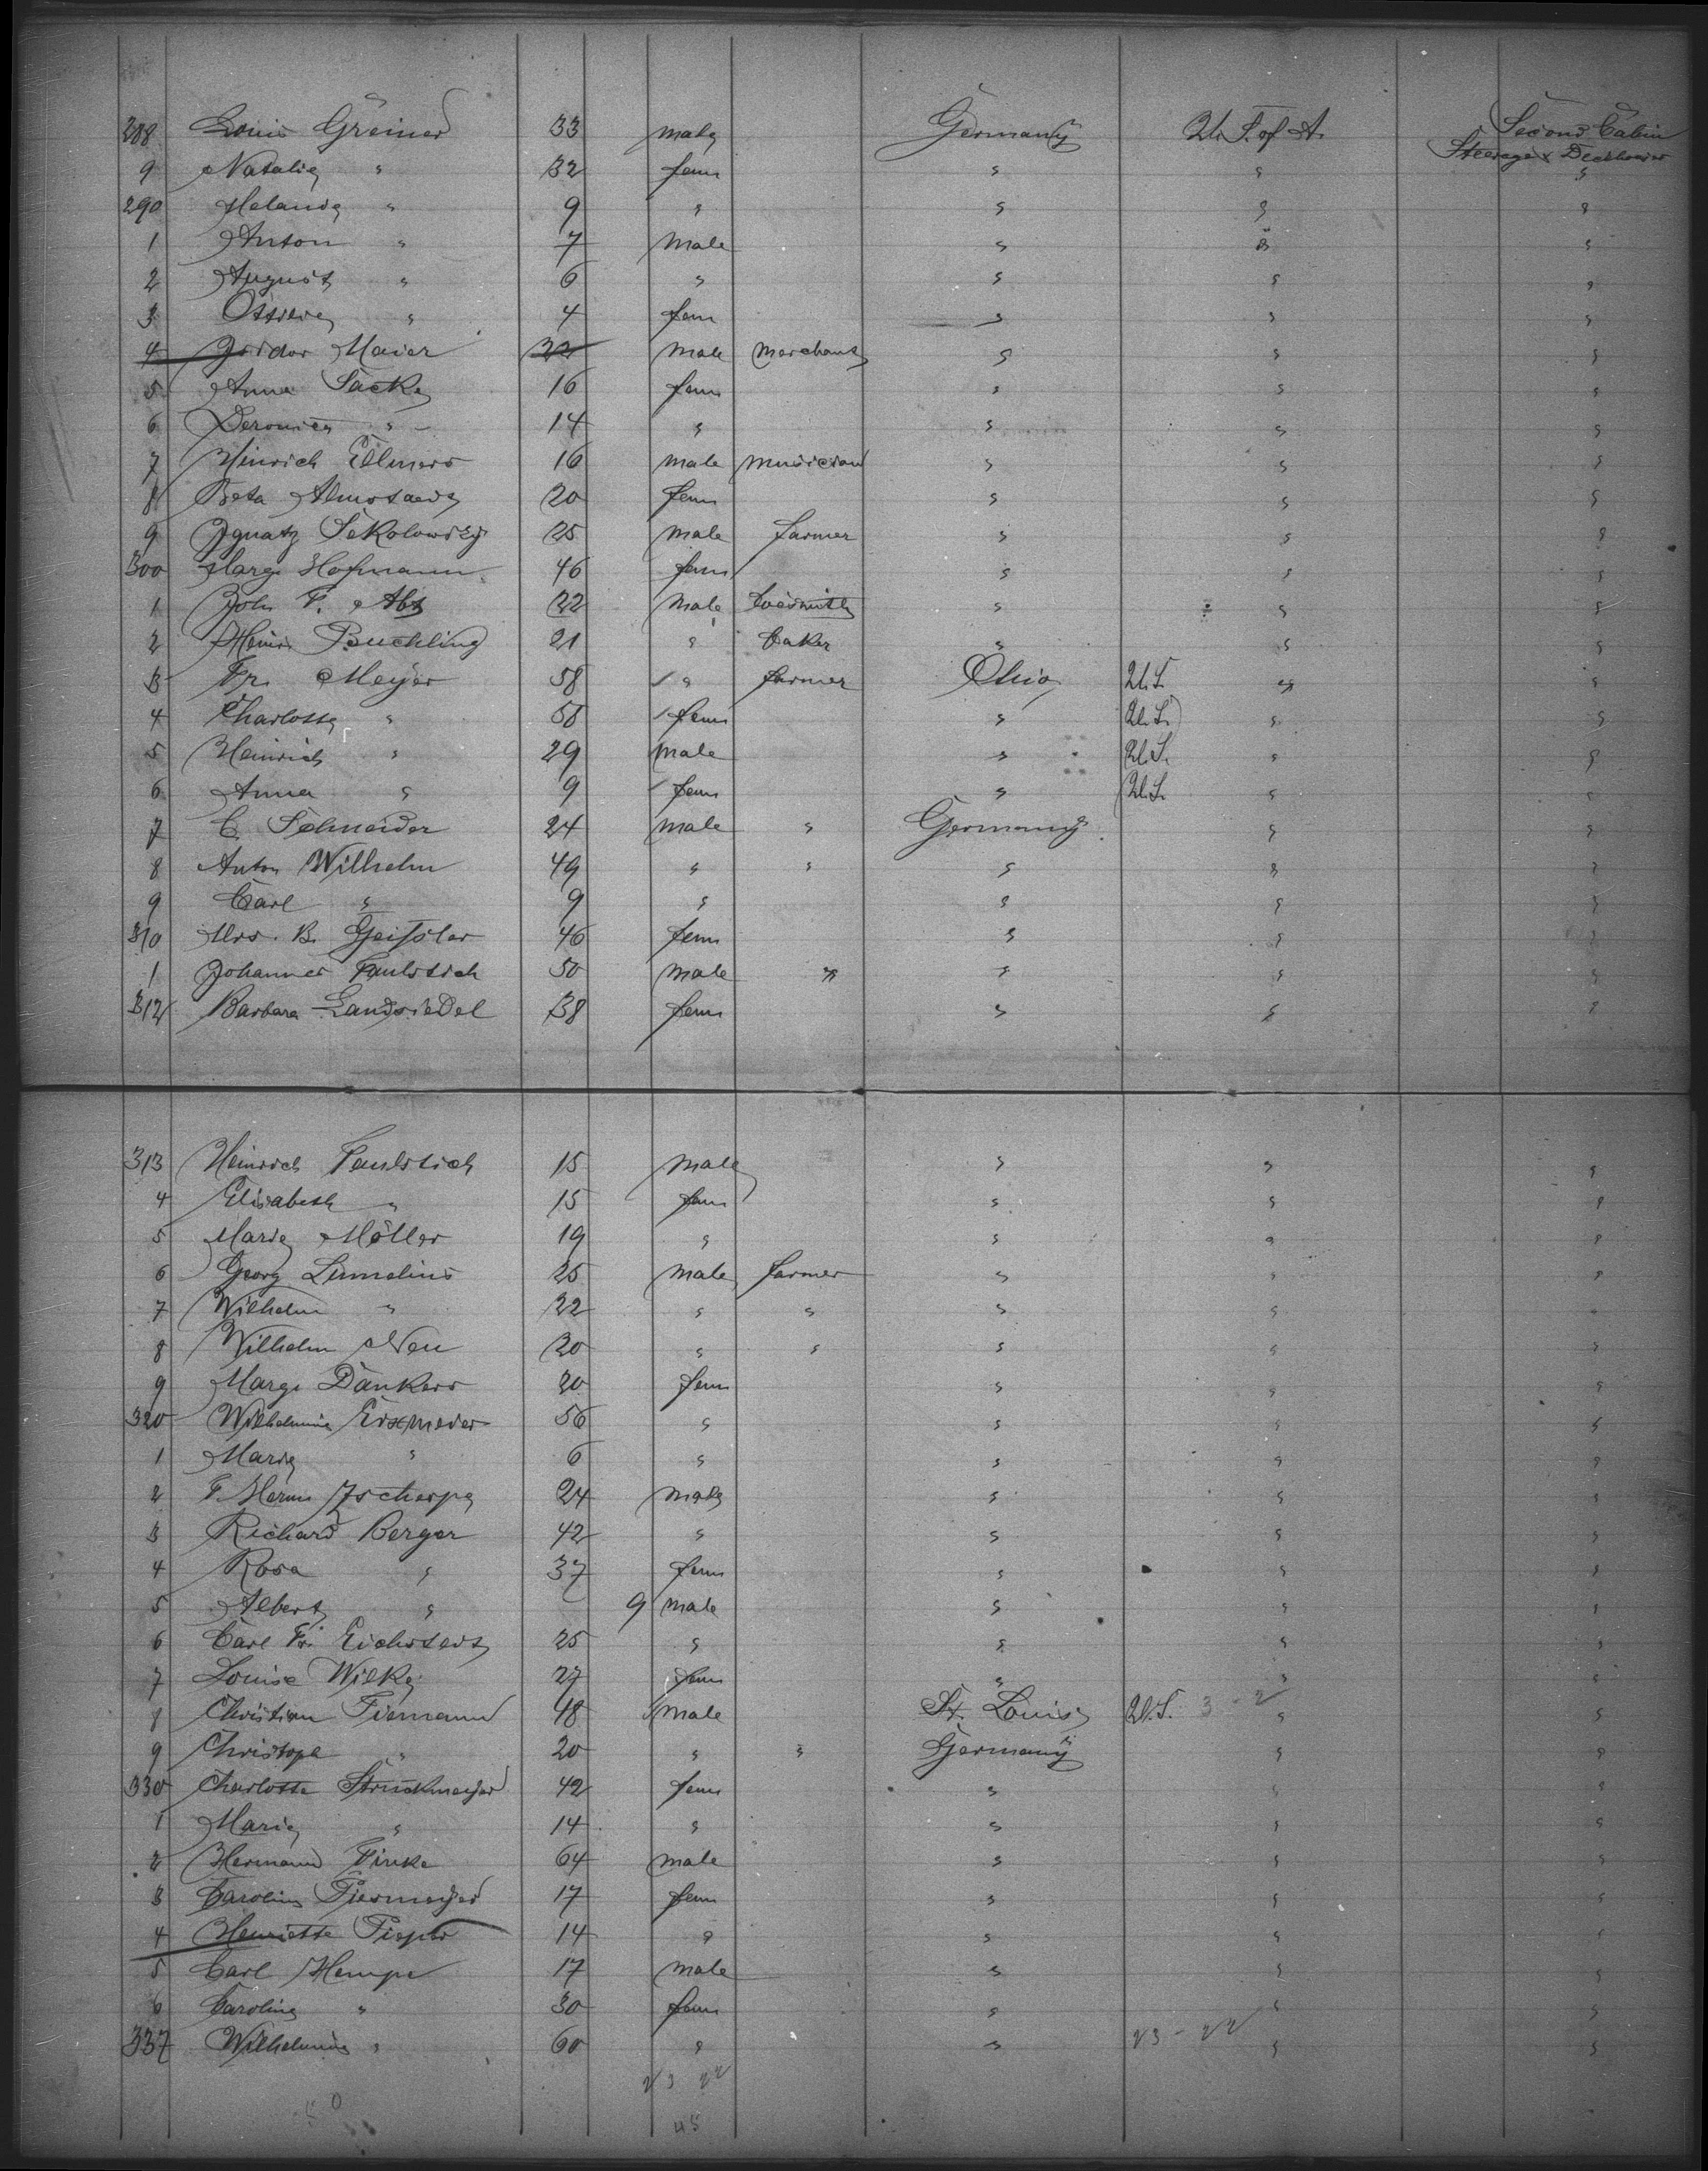 288 Louis Greiner 33 male Germany U.S. of A. Second Cabin
Steerage
9 Natalie " 32 fem " " "
290 Melanie " 9 " " " "
1 Anton " 7 male " " "
2 August " 6 " " " "
3 Ottilie " 4 fem " " "
4 Isidor Maier 22 male merchant " " "
5 Anna Sacke 16 fem " " "
6 " 14 " " " "
7 Hinrich Ellmers 16 male musician " " "
8 Beta 20 fem " " "
9 Ignatz Sokolowsky 25 male farmer " " "
300 Marg. Hofmann 46 fem " " "
1 Joh. F. Abt 22 male " " "
2 Heinr. Buchling 21 " baker " " "
3 Fr. Meyer 58 " farmer Ohio U.S. " "
4 Charlotte " 58 fem " U.S. " "
5 Heinrich " 29 male " U.S. " "
6 Anna " 9 fem " U.S. " "
7 C. Schneider 24 male " Germany " "
8 Anton Wilhelm 49 " " " " "
9 Carl " 9 " " " "
310 Mrs. B. Geissler 46 fem " " "
1 Johannes Faulstich 50 male " " " "
312 Barbara Landsiedel 38 fem " " "
313 Heinrich Faulstich 15 male " " "
4 Elisabeth " 15 fem " " "
5 Marie Möller 19 " " " "
6 Georg 25 male farmer " " "
7 Wilhelm " 22 " " " " "
8 Wilhelm Neu 20 " " " " "
9 Marg. Dankers 20 fem " " "
320 Wilhelmine 56 " " " "
1 Marie " 6 " " " "
2 F. Herm. Zscherpe 24 male " " "
3 Richard Berger 42 " " " "
4 Rosa " 37 fem " " "
5 Albert " 9 male " " "
6 Carl Fr. Eichstedt 25 " " " "
7 Louise Wilke 27 fem " " "
8 Christian Tiemann 48 male St. Louis U.S. 3 - 2 " "
9 Christoph " 20 " " Germany " "
330 Charlotte Struckmeyer 42 fem " " "
1 Marie " 14 " " " "
2 Hermann Finke 64 male " " "
3 Caroline 17 fem " " "
4 Henriette 14 " " " "
5 Carl Hempe 17 male " " "
6 Caroline " 30 fem " " "
337 Wilhelmine " 60 " " 23 - 22 " "
23 22
50 45